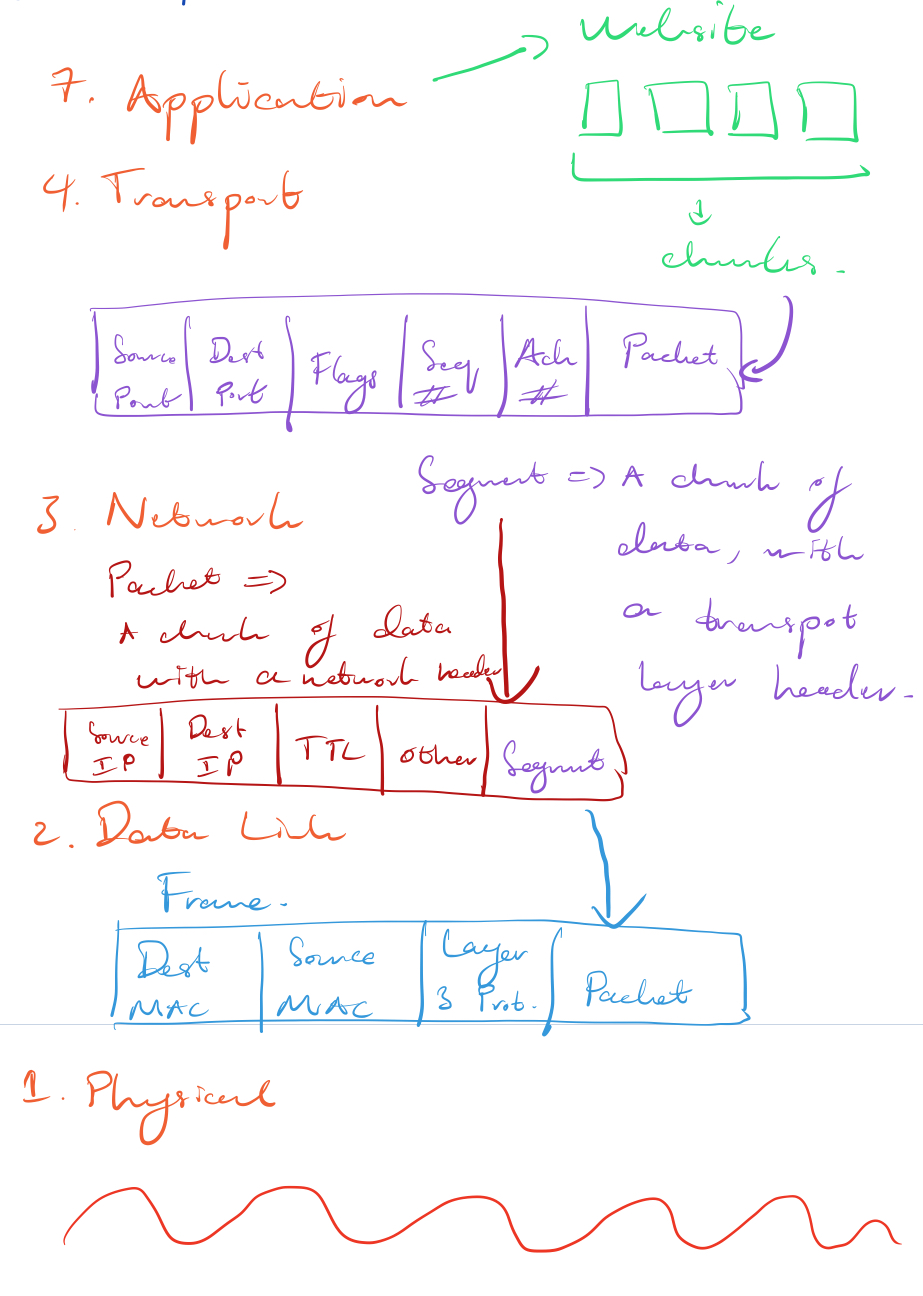 Website
7. Application
4. Transport
chunks.
Source Port
Dest Port
Flags
Seq #
Ack #
Packet
Segment => A chunk of
data, with
a transpot
layer header.
3. Network
Packet =>
A chunk of data
with a network header
Source IP
Dest IP
TTL
other
Segment
2. Data Link
Frame.
Dest MAC
Source MAC
Layer 3 Prot.
Packet
1. Physical